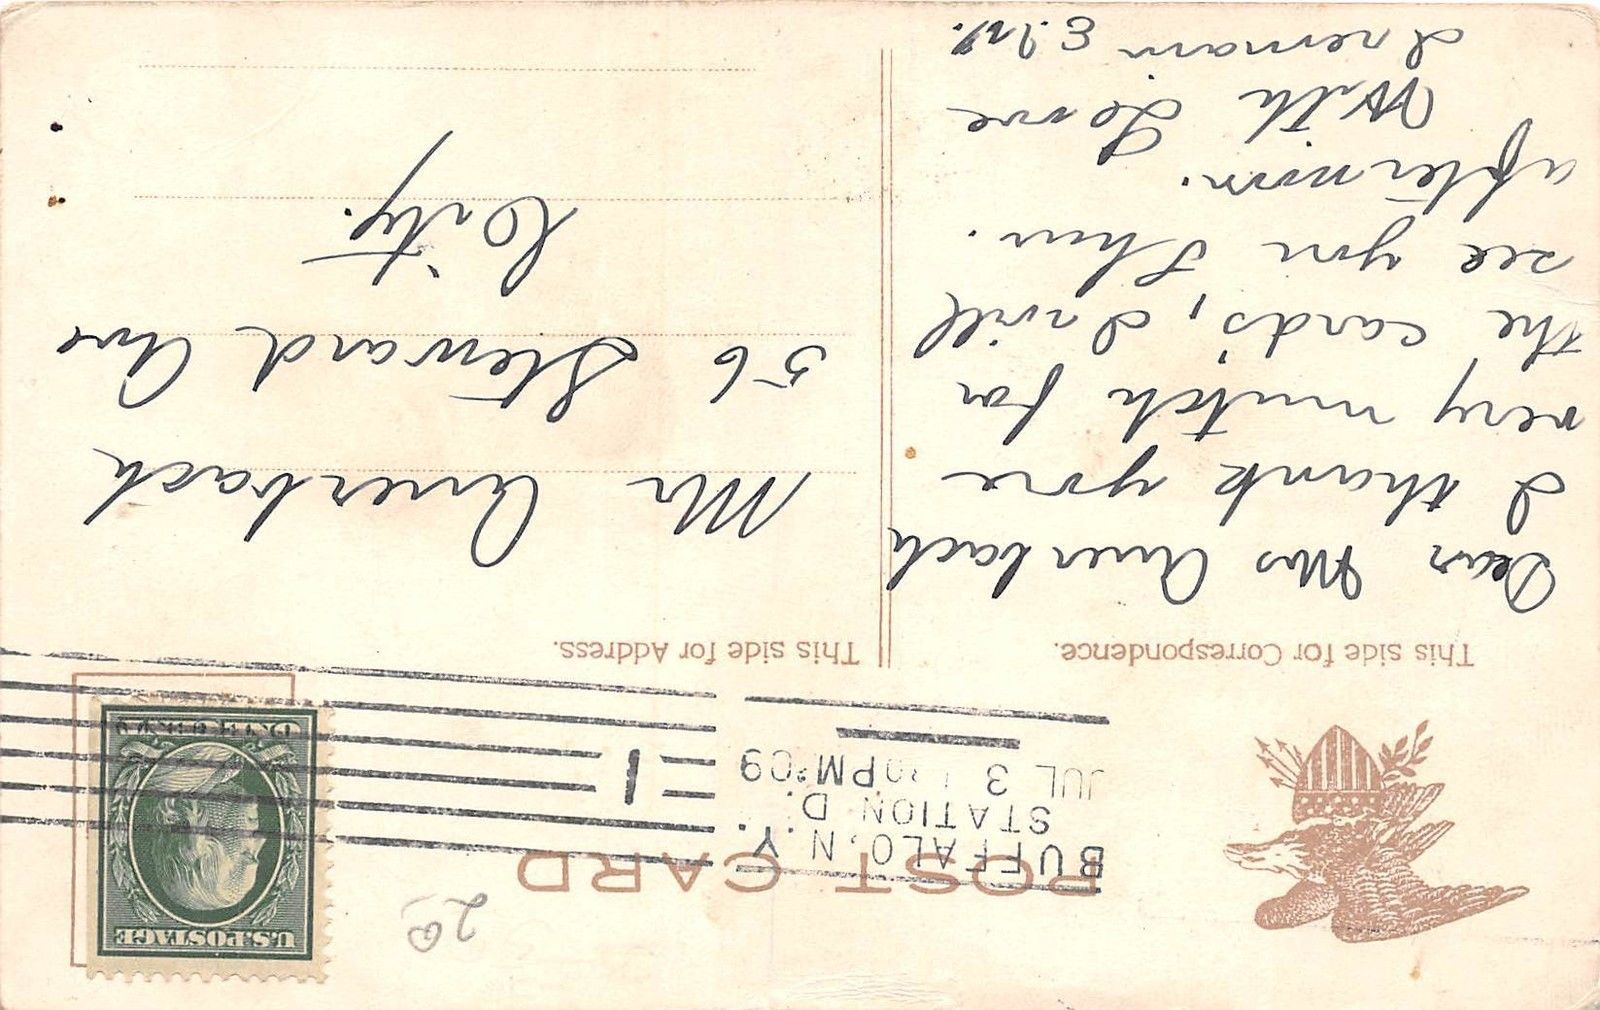 POST CARD
BUFFALO, N.Y.
STATION D.
JUL 3 1 30PM '09
1
U.S. POSTAGE
20
This side for Correspondence.
This side for Address.
Dear Mrs Auerbach
I thank you
very mutch for
the cards, I will
see you Thur.
afternoon.
With Love
Mr Auerbach
56 Steward Ave
City.